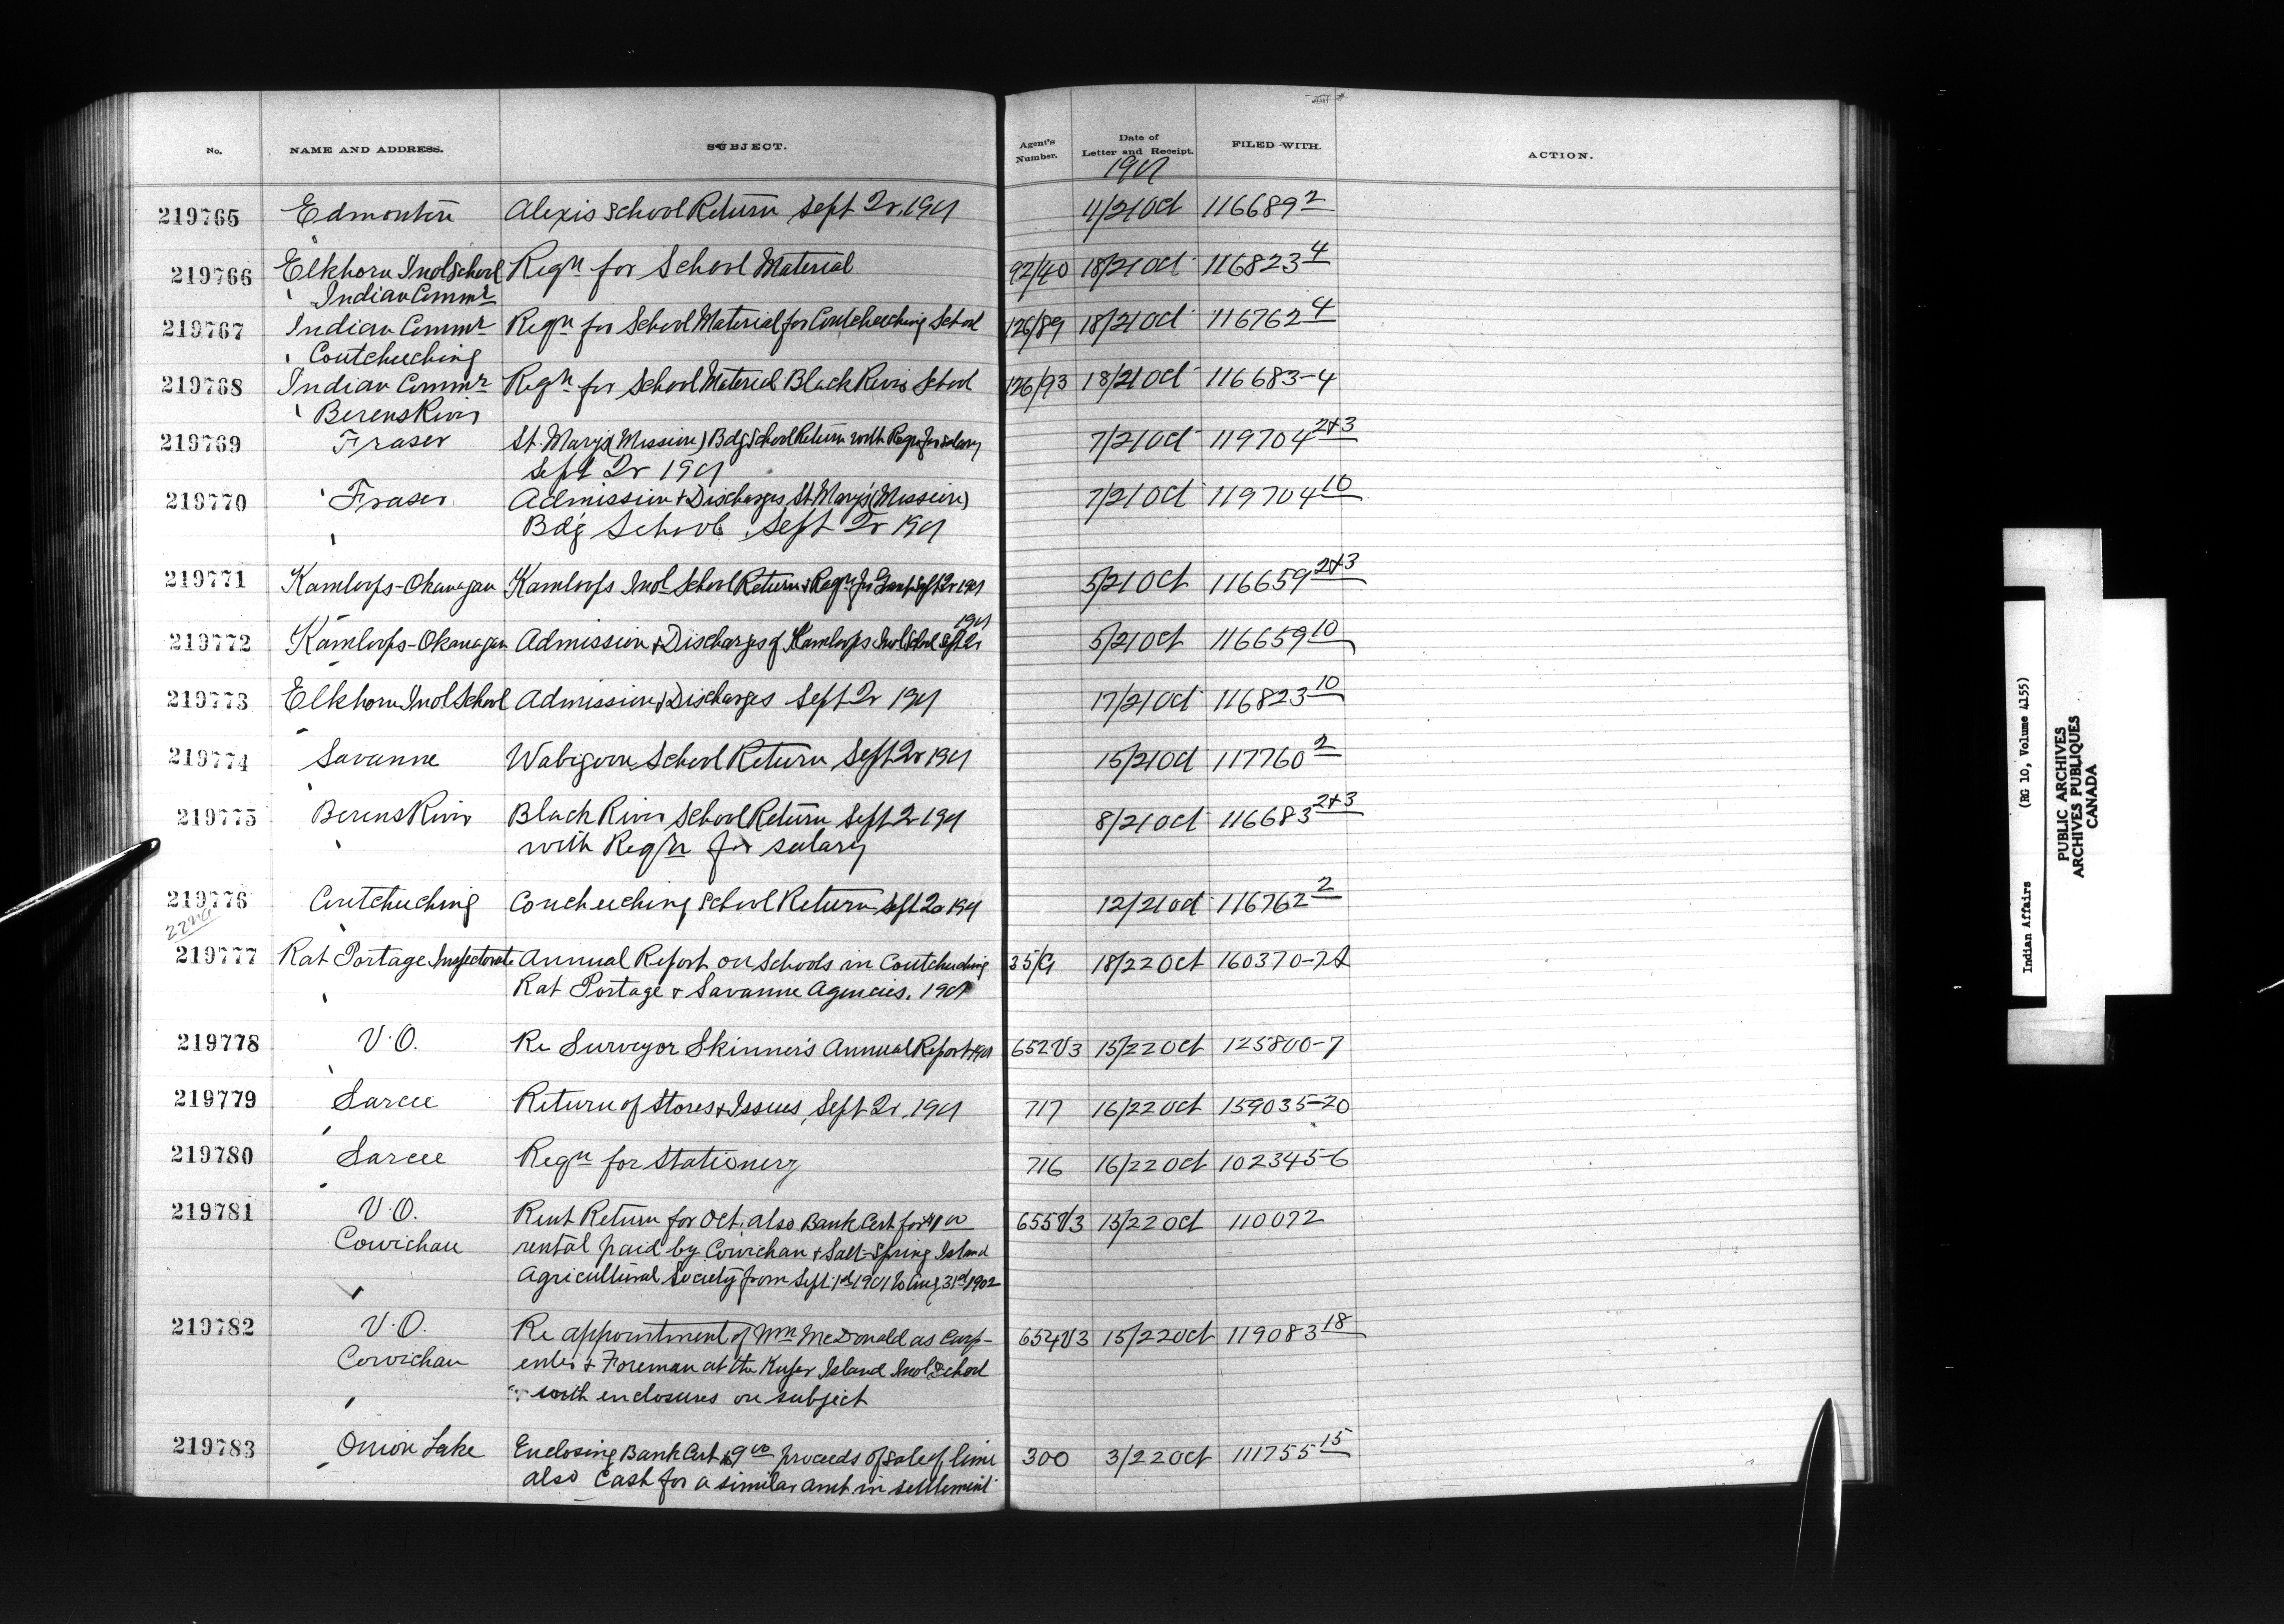 No. NAME AND ADDRESS. SUBJECT. Agent's Number. Date of Letter and Receipt. FILED WITH. ACTION.
1901
219765 Edmonton Alexis School Return Sept Qr. 1901 4/21 Oct 116689 2
219766 Elkhorn Indl School Reqn for School Material 92/40 18/21 Oct 116823 4
Indian Commr
219767 Indian Commr Reqn for School Material for Coutcheeching School 126/89 18/21 Oct 116762 4
Coutcheeching
219768 Indian Commr Reqn for School Material Black River School 126/93 18/21 Oct 116683-4
Berens River
219769 Fraser St. Marys (Mission) Bdg School Return with Reqn for salary 7/21 Oct 119704 2+3
Sept Qr 1901
219770 Fraser Admission & Discharges St. Mary's (Mission) 7/21 Oct 119704 10
Bdg School, Sept Qr 1901
219771 Kamloops-Okanagan Kamloops Indl School Return & Reqn for Grant Sept Qr 1901 5/21 Oct 116659 2+3
1901
219772 Kamloops-Okanagan Admission & Discharges of Kamloops Indl School Sept Qr 5/21 Oct 116659 10
219773 Elkhorn Indl School Admission & Discharges Sept Qr 1901 17/21 Oct 116823 10
219774 Savanne Wabigoon School Return Sept Qr 1901 15/21 Oct 117760 2
219775 Berens River Black River School Return Sept Qr 1901 8/21 Oct 116683 2+3
with Reqn for salary
219776 Coutcheeching Coucheeching School Return Sept Qr 1901 12/21 Oct 116762 2
22nd
219777 Rat Portage Inspectorate Annual Report on Schools in Coutcheeching 35/G 18/22 Oct 160370-
Rat Portage & Savanne Agencies. 1901
219778 V.O. Re Surveyor Skinner's Annual Report 1901 652V3 15/22 Oct 125800-7
219779 Sarcee Return of Stores & Issues, Sept Qr. 1901 717 16/22 Oct 159035-20
219780 Sarcee Reqn for Stationery 716 16/22 Oct 102345-6
219781 V.O. Rent Return for Oct. also Bank Cert for $1 00 655V3 15/22 Oct 110072
Cowichan rental paid by Cowichan & Salt-Spring Island
Agricultural Society from Sept. 1st 1901 to Aug 31st 1902
219782 V.O. Re appointment of Wm McDonald as Carp- 654V3 15/22 Oct 119083 18
Cowichan enter & Foreman at the Kuper Island Indl School
with enclosures on subject
219783 Onion Lake Enclosing Bank Cert $9 00 proceeds of sale of lime 300 3/22 Oct 111755 15
also Cash for a similar amt. in settlement
Indian Affairs (RG 10, Volume 4155)
PUBLIC ARCHIVES
ARCHIVES PUBLIQUES
CANADA